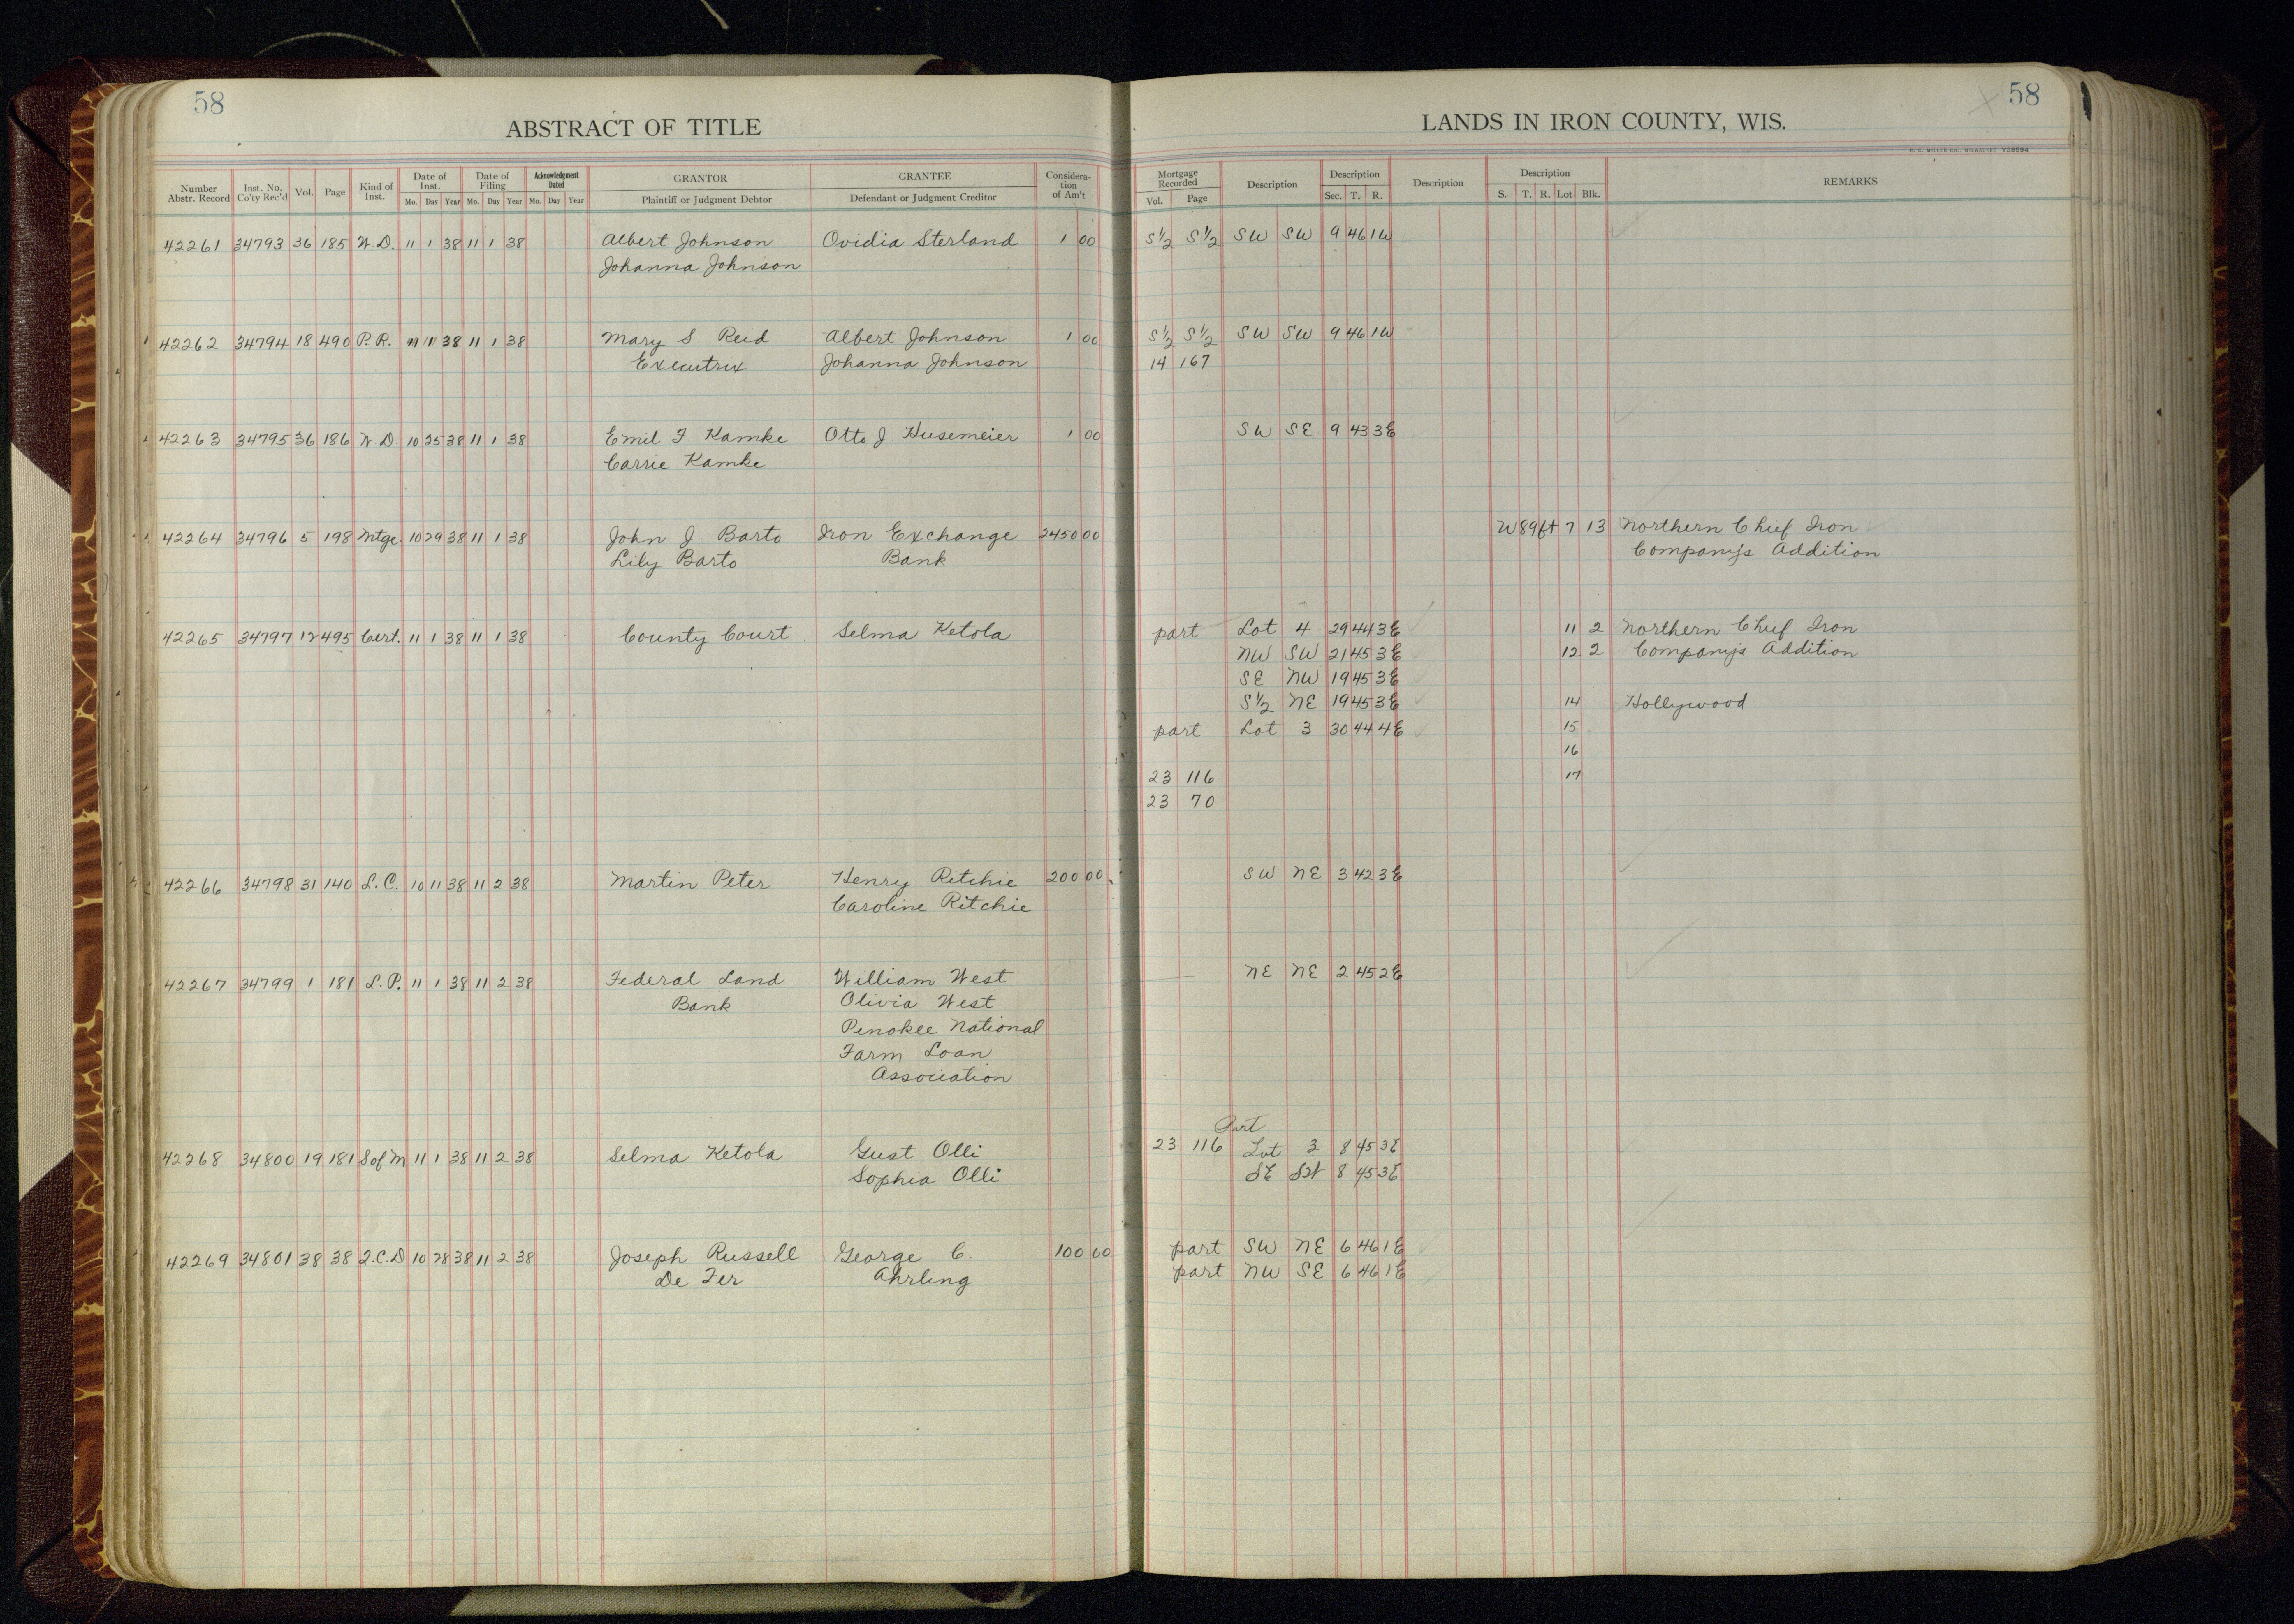 58
ABSTRACT OF TITLE
Number Abstr. Record Inst. No. Co'ty Rec'd Vol. Page Kind of Inst. Date of Inst. Mo. Day Year Date of Filing Mo. Day Year Acknowledgment Dated Mo. Day Year GRANTOR Plaintiff or Judgment Debtor GRANTEE Defendant or Judgment Creditor Considera-tion of Am't
42261 34793 36 185 W.D. 11 1 38 11 1 38 Albert Johnson Ovidia Sterland 1 00
Johanna Johnson
42262 34794 18 490 P.R. 11 38 11 1 38 Mary S Reid Albert Johnson 1 00
Executrix Johanna Johnson
42263 34795 36 186 W.D. 10 25 38 11 1 38 Emil F. Kamke Otto J Husemeier 1 00
Carrie Kamke
42264 34796 5 198 Mtge. 10 29 38 11 1 38 John J Barto Iron Exchange 2450 00
Lily Barto Bank
42265 34797 12 495 Cert. 11 1 38 11 1 38 County Court Selma Ketola
42266 34798 31 140 L.C. 10 11 38 11 2 38 Martin Peter Henry Ritchie 200 00
Caroline Ritchie
42267 34799 1 181 L.P. 11 1 38 11 2 38 Federal Land William West
Bank Olivia West
Penokee National
Farm Loan
Association
42268 34800 19 181 S of M 11 1 38 11 2 38 Selma Ketola Gust Olli
Sophia Olli
42269 34801 38 38 Q.C.D 10 28 38 11 2 38 Joseph Russell George C. 100 00
De Fer Ahrling
58
LANDS IN IRON COUNTY, WIS.
H. C. MILLER CO., MILWAUKEE
Mortgage Recorded Vol. Page Description Description Sec. T. R. Description Description S. T. R. Lot Blk. REMARKS
S½ S½ SW SW 9 46 1W
S½ S½ SW SW 9 46 1W
14 167
SW SE 9 43 3E
W 89ft 7 13 Northern Chief Iron
Company's Addition
part Lot 4 29 44 3E 11 2 Northern Chief Iron
NW SW 21 45 3E 12 2 Company's Addition
SE NW 19 45 3E
S½ NE 19 45 3E 14 Hollywood
part Lot 3 30 44 4E 15
16
23 116 17
23 70
SW NE 3 42 3E
NE NE 2 45 2E
Part
23 116 Lot 3 8 45 3E
SE SW 8 45 3E
part SW NE 6 46 1E
part NW SE 6 46 1E